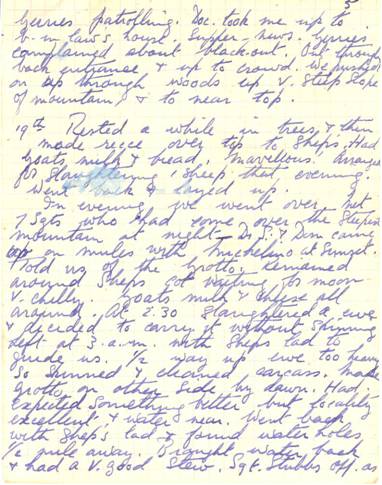 5
Gerries patrolling. Doc. took me up to
b-in-law's house. Supper - news. Gerries
complained about blackout. Out through
back entrance & up to crowd. We pushed
on up through woods up V. Steep slope
of mountain, & to near top.
19th Rested a while in trees, & then
made recce over top to Sheps. Had
goats milk & bread. Marvellous. Arranged
for Slaughtering 1 sheep that evening.
Went back & layed up.
In evening we went over. Met
7 Sgts who had come over the Steepest
mountain at night - Dr. S. & Dom came
up on mules with Michelino at Sunset.
& told us of the grotto. Remained
around Sheps got waiting for moon
V. chilly. Goats milk & cheese all
around. At 2.30 Slaughtered a ewe
& decided to carry it without Skinning
Left at 3 a.m. with Sheps lad to
guide us. 1/2 way up ewe too heavy
So Skinned & cleaned carcass. Made
grotto on other Side by dawn. Had
expected Something better but locality
excellent, & water near. Went back
with Shep's lad & found water holes
1/2 mile away. Brought water back
& had a V. good Stew. Sgt. Stubbs off. as